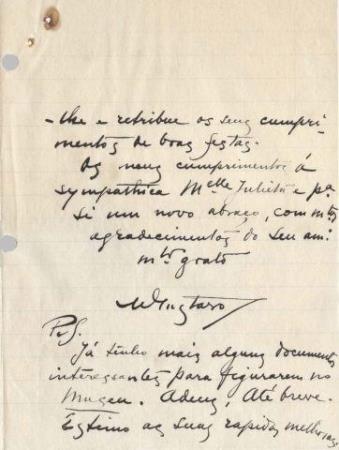 -lhe e retribue os seus cumpri-
mentos de boas festas.
Os meus cumprimentos á
sympathica Melle Julieta e pa
si um novo abraço, com mtos
agradecimentos do seu am:
mto grato
P.S.
Já tenho mais alguns documentos
interessantes para figurarem no
Museu. Adeus, Até breve.
Estimo as suas rapidas melhoras